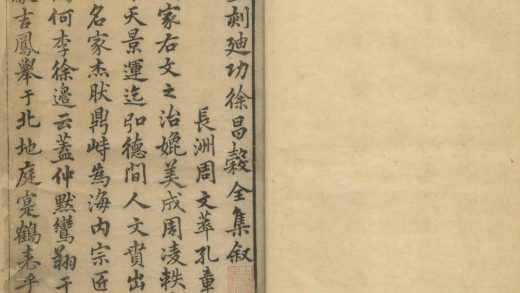 刻廸功徐昌穀全集叙
長洲周文萃孔章
家右文之治媲美成周凌軼
天景運迄弘德間人文賁出
名家杰肰鼎峙為海内宗匠
何李徐邉云蓋仲默鸞翔于
吉鳳舉于北地庭寔鶴乎